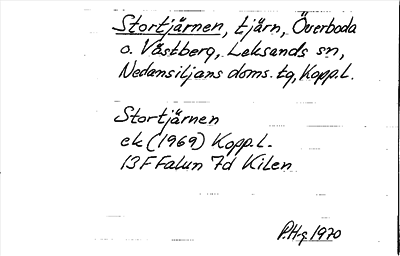 Stortjärnen, tjärn, Överboda
o. Västberg, Leksands sn,
Nedansiljans doms. tg, Kopp.l.
Stortjärnen
ek (1969) Kopp.l.
13F Falun 7d Kilen
P.H-g 1970